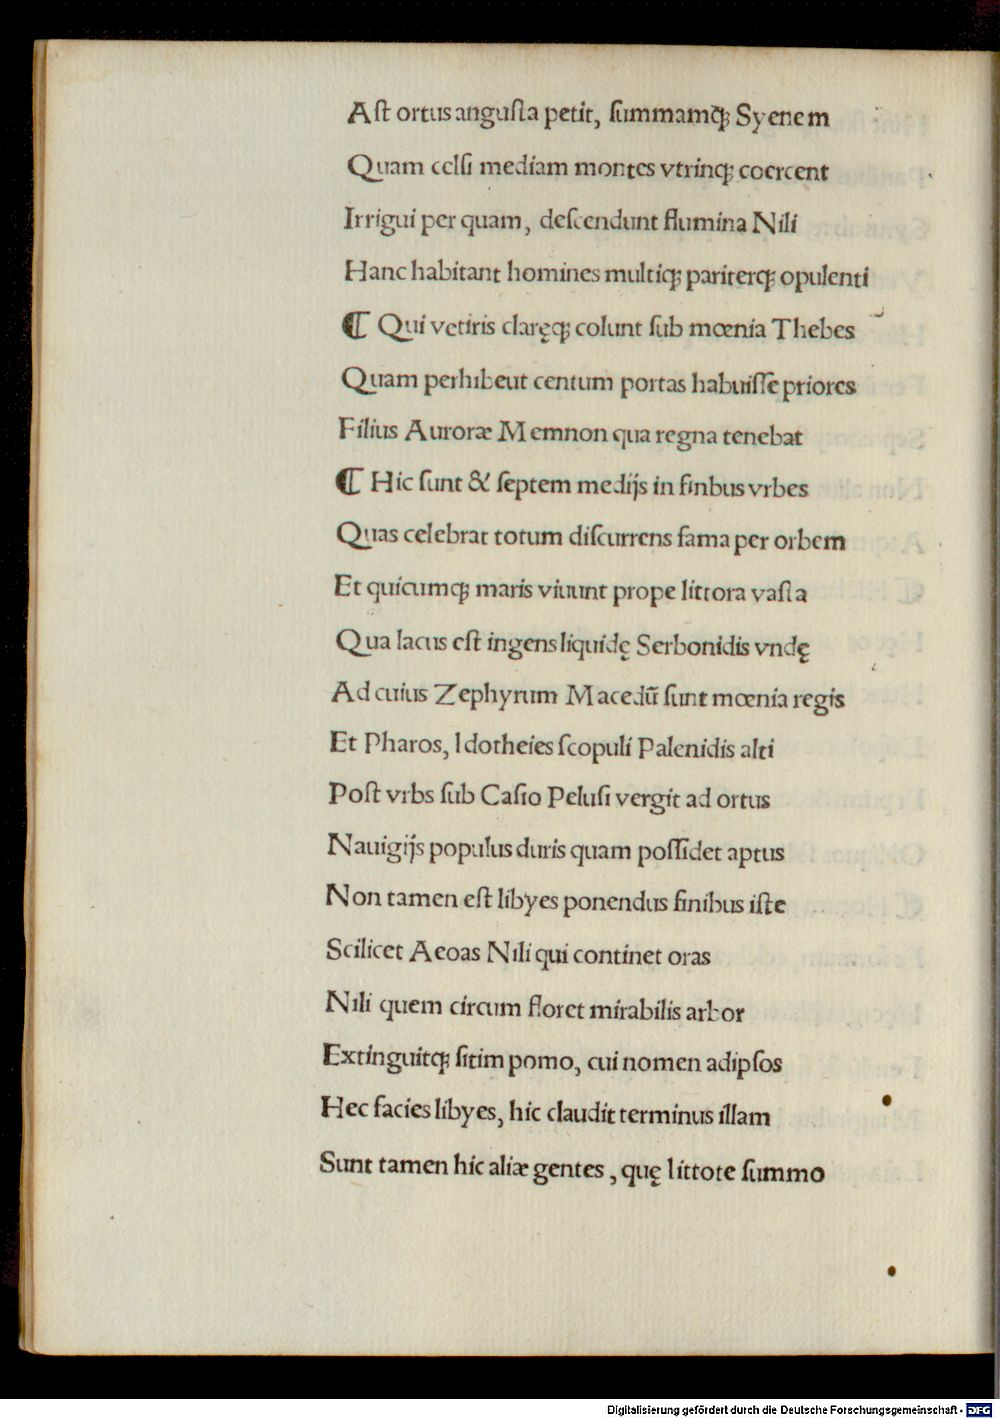 Aſt ortus anguſta petit, ſummamqꝫ Syenem
Quam celſi mediam montes vtrinqꝫ coercent
Irrigui per quam, deſcendunt flumina Nili
Hanc habitant homines multiqꝫ pariterqꝫ opulenti
¶ Qui vetiris claręqꝫ colunt ſub mœnia Thebes
Quam perhibeut centum portas habuiſſe priores
Filius Auroræ Memnon qua regna tenebat
¶ Hic ſunt & ſeptem medijs in finbus vrbes
Quas celebrat totum diſcurrens fama per orbem
Et quicumqꝫ maris viuunt prope littora vaſta
Qua lacus eſt ingens liquidę Serbonidis vndę
Ad cuius Zephyrum Macedū ſunt mœnia regis
Et Pharos, Idotheies ſcopuli Palenidis alti
Poſt vrbs ſub Caſio Peluſi vergit ad ortus
Nauigijs populus duris quam poſſidet aptus
Non tamen eſt libyes ponendus finibus iſte
Scilicet Aeoas Nili qui continet oras
Nili quem circum floret mirabilis arbor
Extinguitqꝫ ſitim pomo, cui nomen adipſos
Hec facies libyes, hic claudit terminus illam
Sunt tamen hic aliæ gentes, quę littote ſummo
Digitalisierung gefördert durch die Deutsche Forschungsgemeinschaft - DFG